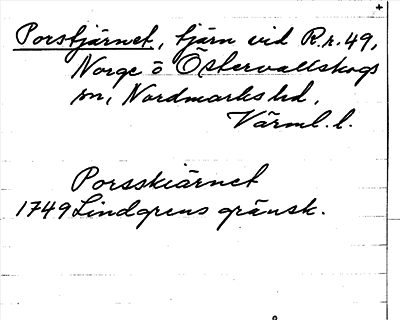 Porstjärnet, tjärn vid R.r. 49,
Norge ö Östervallskogs
sn, Nordmarks hd,
Värml. l.
Porsskiärnet
1749 Lindgrens gränsk.